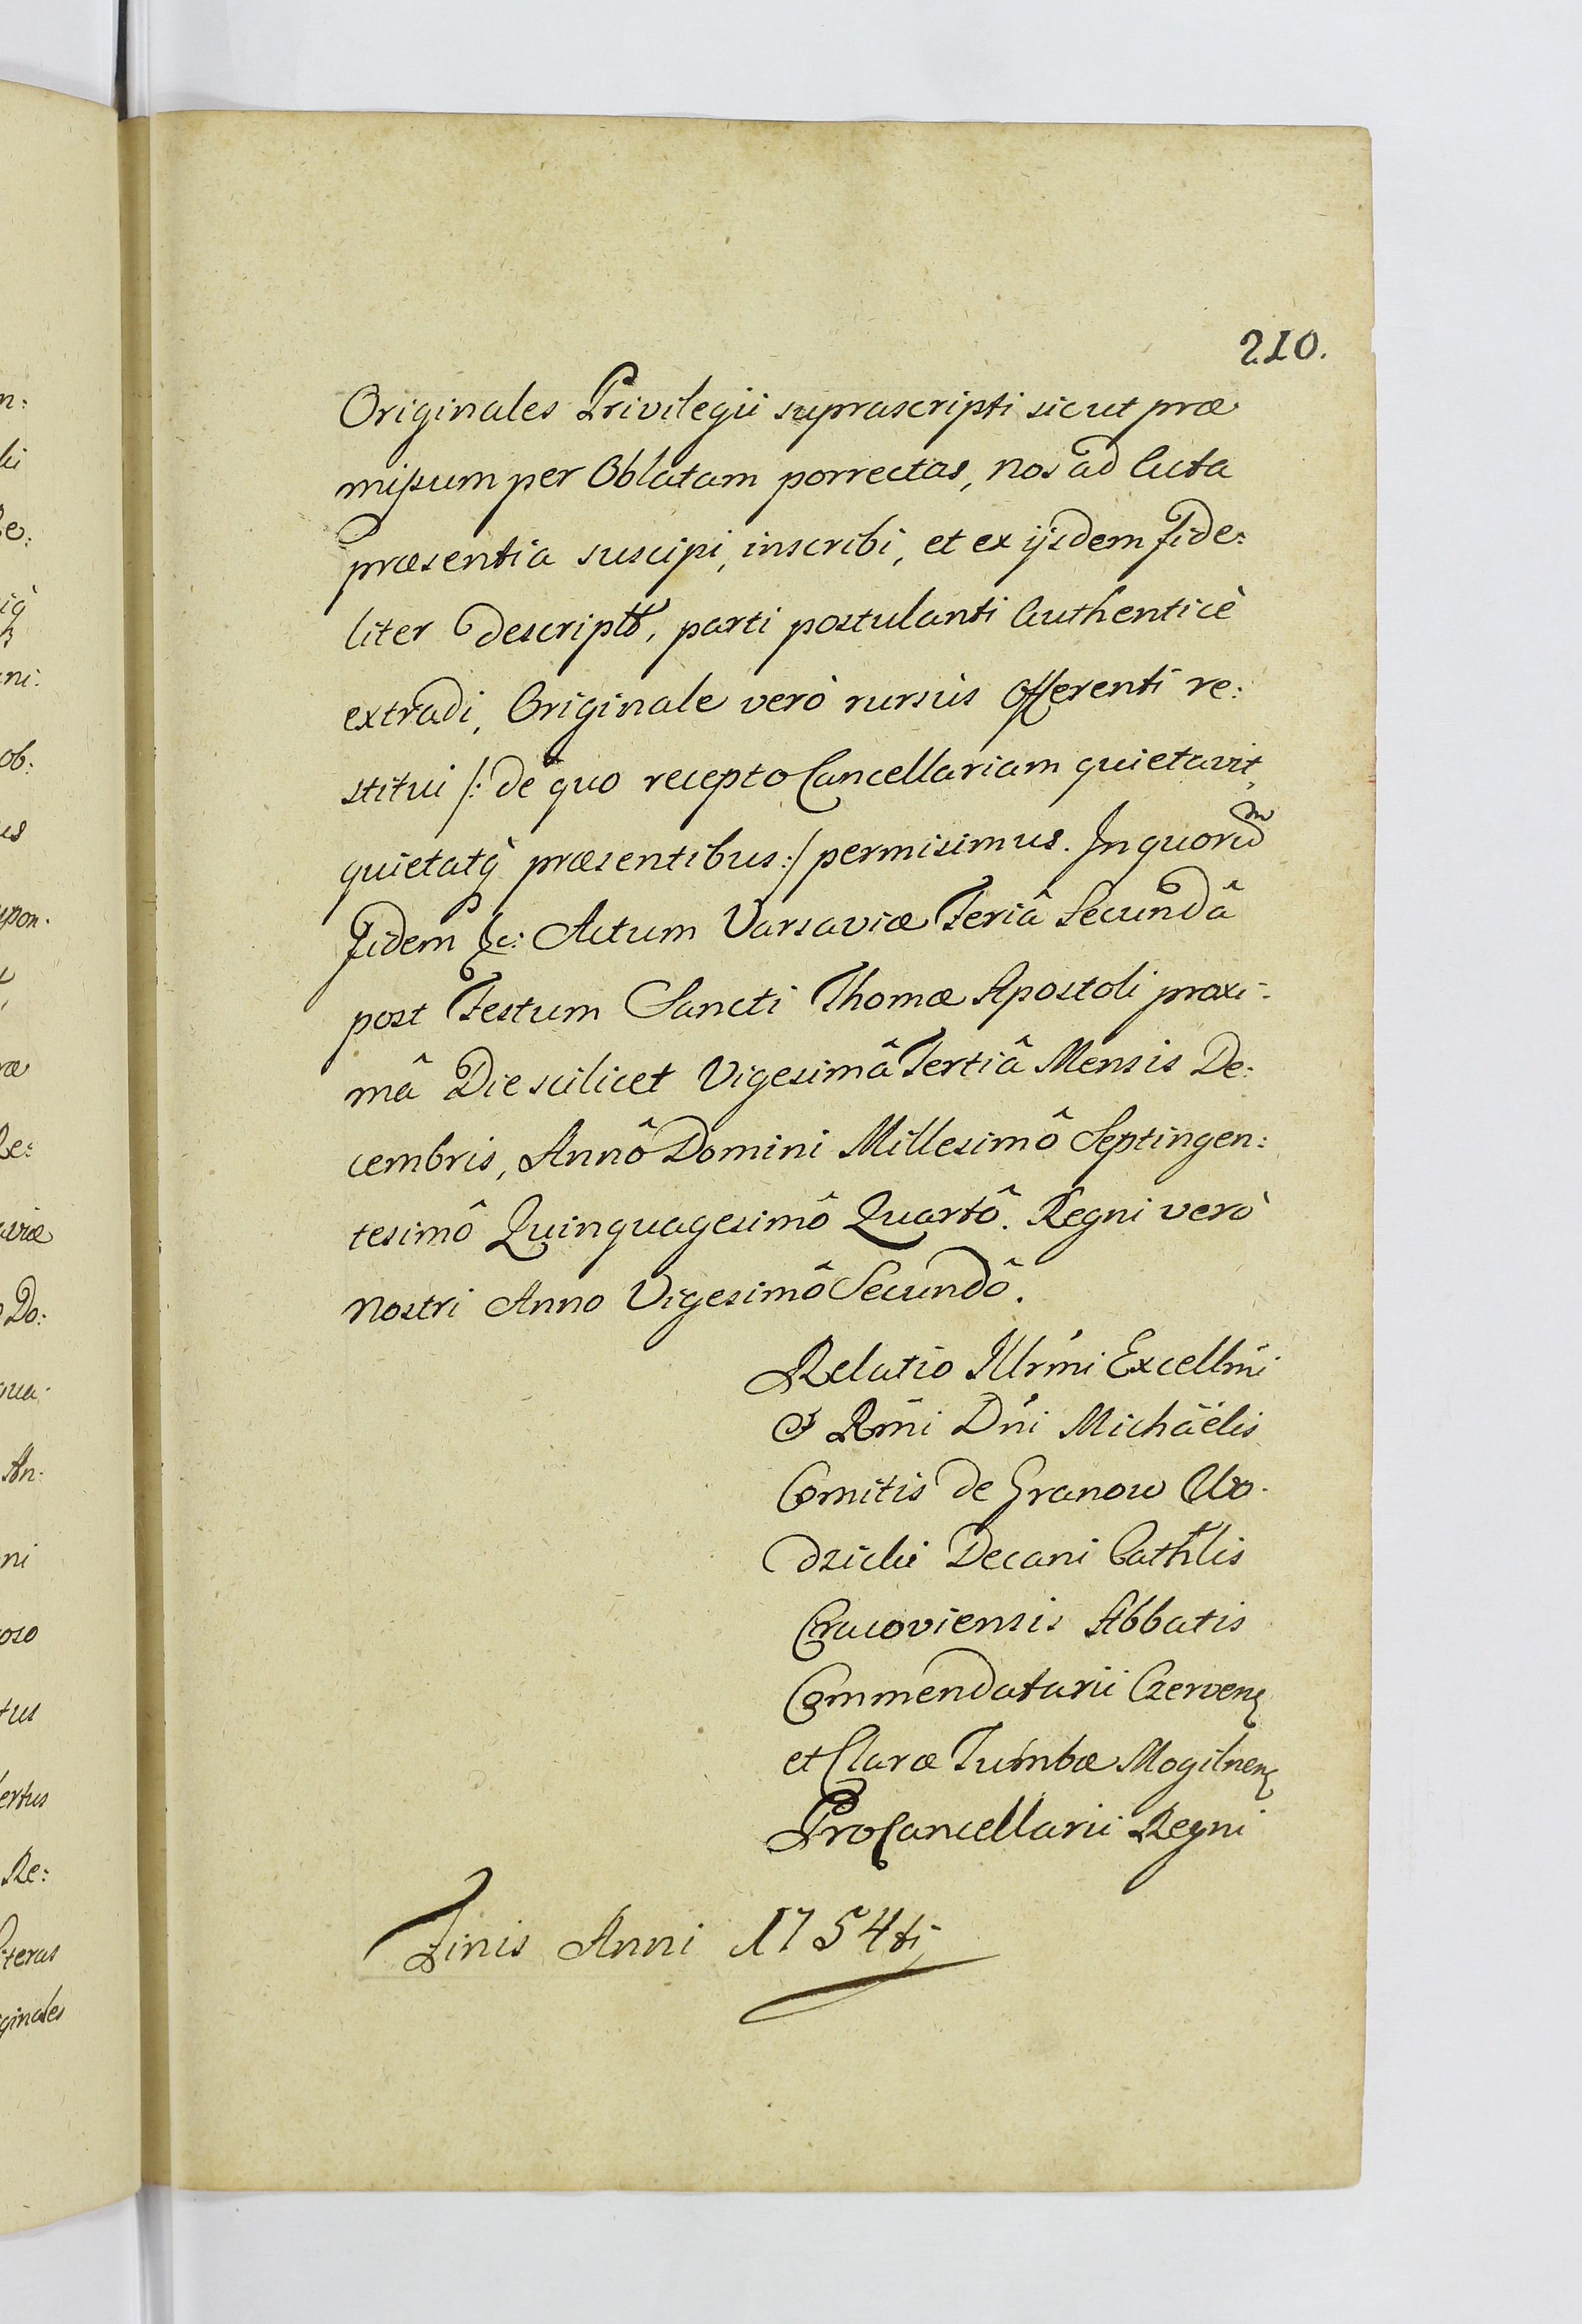 210.
Originales Privilegii suprascripti sicut præ
missum per Oblatam porrectas, nos ad Acta
præsentia suscipi, inscribi, et ex ijsdem Fide:
liter descriptas, parti postulanti Authenticè
extradi, Originale verò rursùs Offerenti re:
stitui /: de quo recepto Cancellariam quietavit,
quietatq præsentibus :/ permisimus. In quorum
Fidem &c: Actum Varsaviæ Feriâ Secundâ
post Festum Sancti Thomæ Apostoli proxi-
mâ Die scilicet Vigesimâ Tertiâ Mensis De:
cembris, Annô Domini Millesimô Septingen:
tesimô Quinquagesimô Quartô. Regni verò
nostri Anno Vigesimô Secundô.
Relatio Illrmi Excellmi
& Rmi Dni Michaëlis
Comitis de Granow Wo-
dzicki Decani Cathlis
Cracoviensis Abbatis
Commendatarii Czerven
et Claræ Tumbæ Mogilnen
ProCancellarii Regni
Finis Anni 1754ti